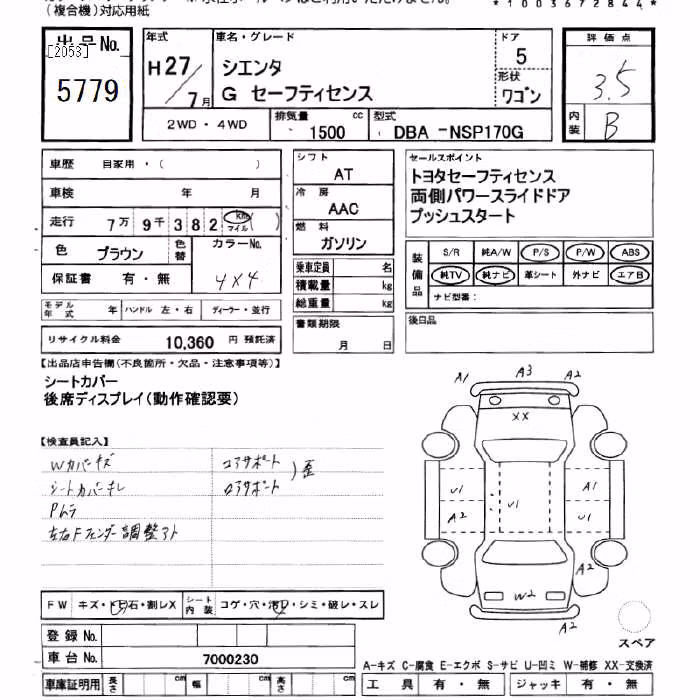 *1003672844*
(複合機)対応用紙
出品No.
[2053]
5779
年式
H27/7月
車名・グレード
シエンタ
G セーフティセンス
ドア
5
形状
ワゴン
評価点
3.5
内装
B
2WD・4WD
排気量 1500 cc
型式 DBA-NSP170G
車歴 自家用・( )
車検 年 月
走行 7万9千382 km マイル ( )
色 ブラウン 色替 カラーNo. 4X4
保証書 有・無
モデル年式 年 ハンドル 左・右 ディーラー・並行
リサイクル料金 10,360 円 預託済
シフト
AT
冷房
AAC
燃料
ガソリン
乗車定員 名
積載量 kg
総重量 kg
書類期限
月 日
セールスポイント
トヨタセーフティセンス
両側パワースライドドア
プッシュスタート
装備品
S/R 純A/W P/S P/W ABS
純TV 純ナビ 革シート 外ナビ エアB
ナビ型番:
後日品
【出品店申告欄(不良箇所・欠品・注意事項等)】
シートカバー
後席ディスプレイ(動作確認要)
【検査員記入】
Wカバーキズ コアサポート
シートカバーキレ ロアサポート )歪
Pムラ
左右Fフェンダー調整アト
A1 A3 A2
XX
A2
U1 U1 A1
A2 U1
A2
W2
A2
スペア
FW キズ・ト石・割レX
シート内装 コゲ・穴・汚レ・シミ・破レ・スレ
登録No.
車台No. 7000230
車庫証明用 長さ cm 幅 cm 高さ cm
A-キズ C-腐食 E-エクボ S-サビ U-凹ミ W-補修 XX-交換済
工具 有・無 ジャッキ 有・無